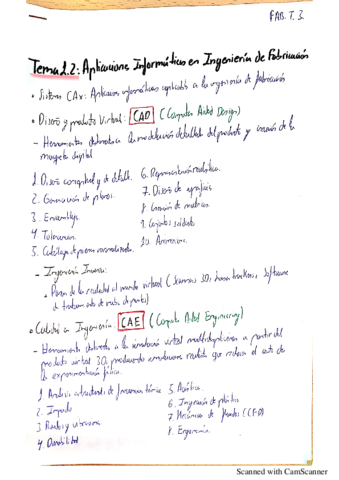 FAB. T. 3.
Tema 2.2: Aplicaciones Informáticas en Ingeniería de Fabricación
• Sistemas CAx: Aplicaciones informáticas aplicables a la ingeniería de fabricación
• Diseño y producto Virtual: CAD (Computer Aided Design)
- Herramientas destinadas a la modelización detallada del producto y creación de la
maqueta digital
1. Diseño conceptual y de detalle.
2. Generación de planos.
3. Ensamblaje.
4. Tolerancias.
5. Catálogo de piezas normalizadas.
6. Representación realística.
7. Diseño de
8. Creación de matrices
9. Conjuntos soldados
10.
- Ingeniería Inversa:
- Pasar de la realidad al mundo virtual (Scanners 3D, Software
de tratamiento de nube de puntos)
• Calidad en Ingeniería CAE (Computer Aided Engineering)
- Herramienta destinada a la simulación virtual multidisciplinar a partir del
producto virtual 3D, produciendo resultados que reducen el coste de
la experimentación física.
1. Análisis estructurales de térmica
2. Impacto
3. Ruidos y vibraciones
4. Durabilidad
5. Acústica.
6. Inyección de plástico
7. Mecánica de Fluidos (CFD)
8. Ergonomía.
Scanned with CamScanner